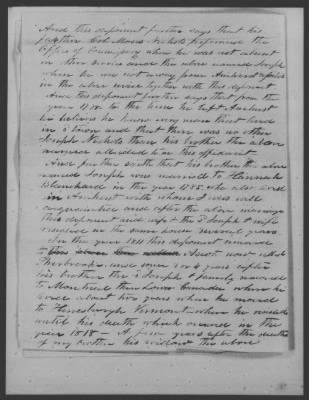 And this deponent further says that his
father Col. Moses Nichols performed the
office of Quarry when he was not absent
in other service and the above named Joseph
when he was not away from Amherst aforesaid
in the above service together with this deponent
And this deponent further says that from the
year 1780 to the time he left Amherst
he believes he knew every man that lived
in s town and that there was no other
Joseph Nichols than his brother the above
named alluded to in this affidavit
And further saith that his brother the above
named Joseph was married to Hannah
Blanchard in the year 1785 who also lived
in Amherst with whom I was well
acquainted and after the above marriage
this deponent and wife & the s Joseph & wife
resided in the same house several years
In the year 1811 this deponent removed
to Ascot now called
Sherbrooke and some 3 or 4 years after
his brother the s Joseph & family moved
to Montreal then Lower Canada where he
lived about two years when he moved
to Hinesburgh Vermont where he resided
until his death which occured in the
year 1818 — A few years after the death
of my brother his widow the above